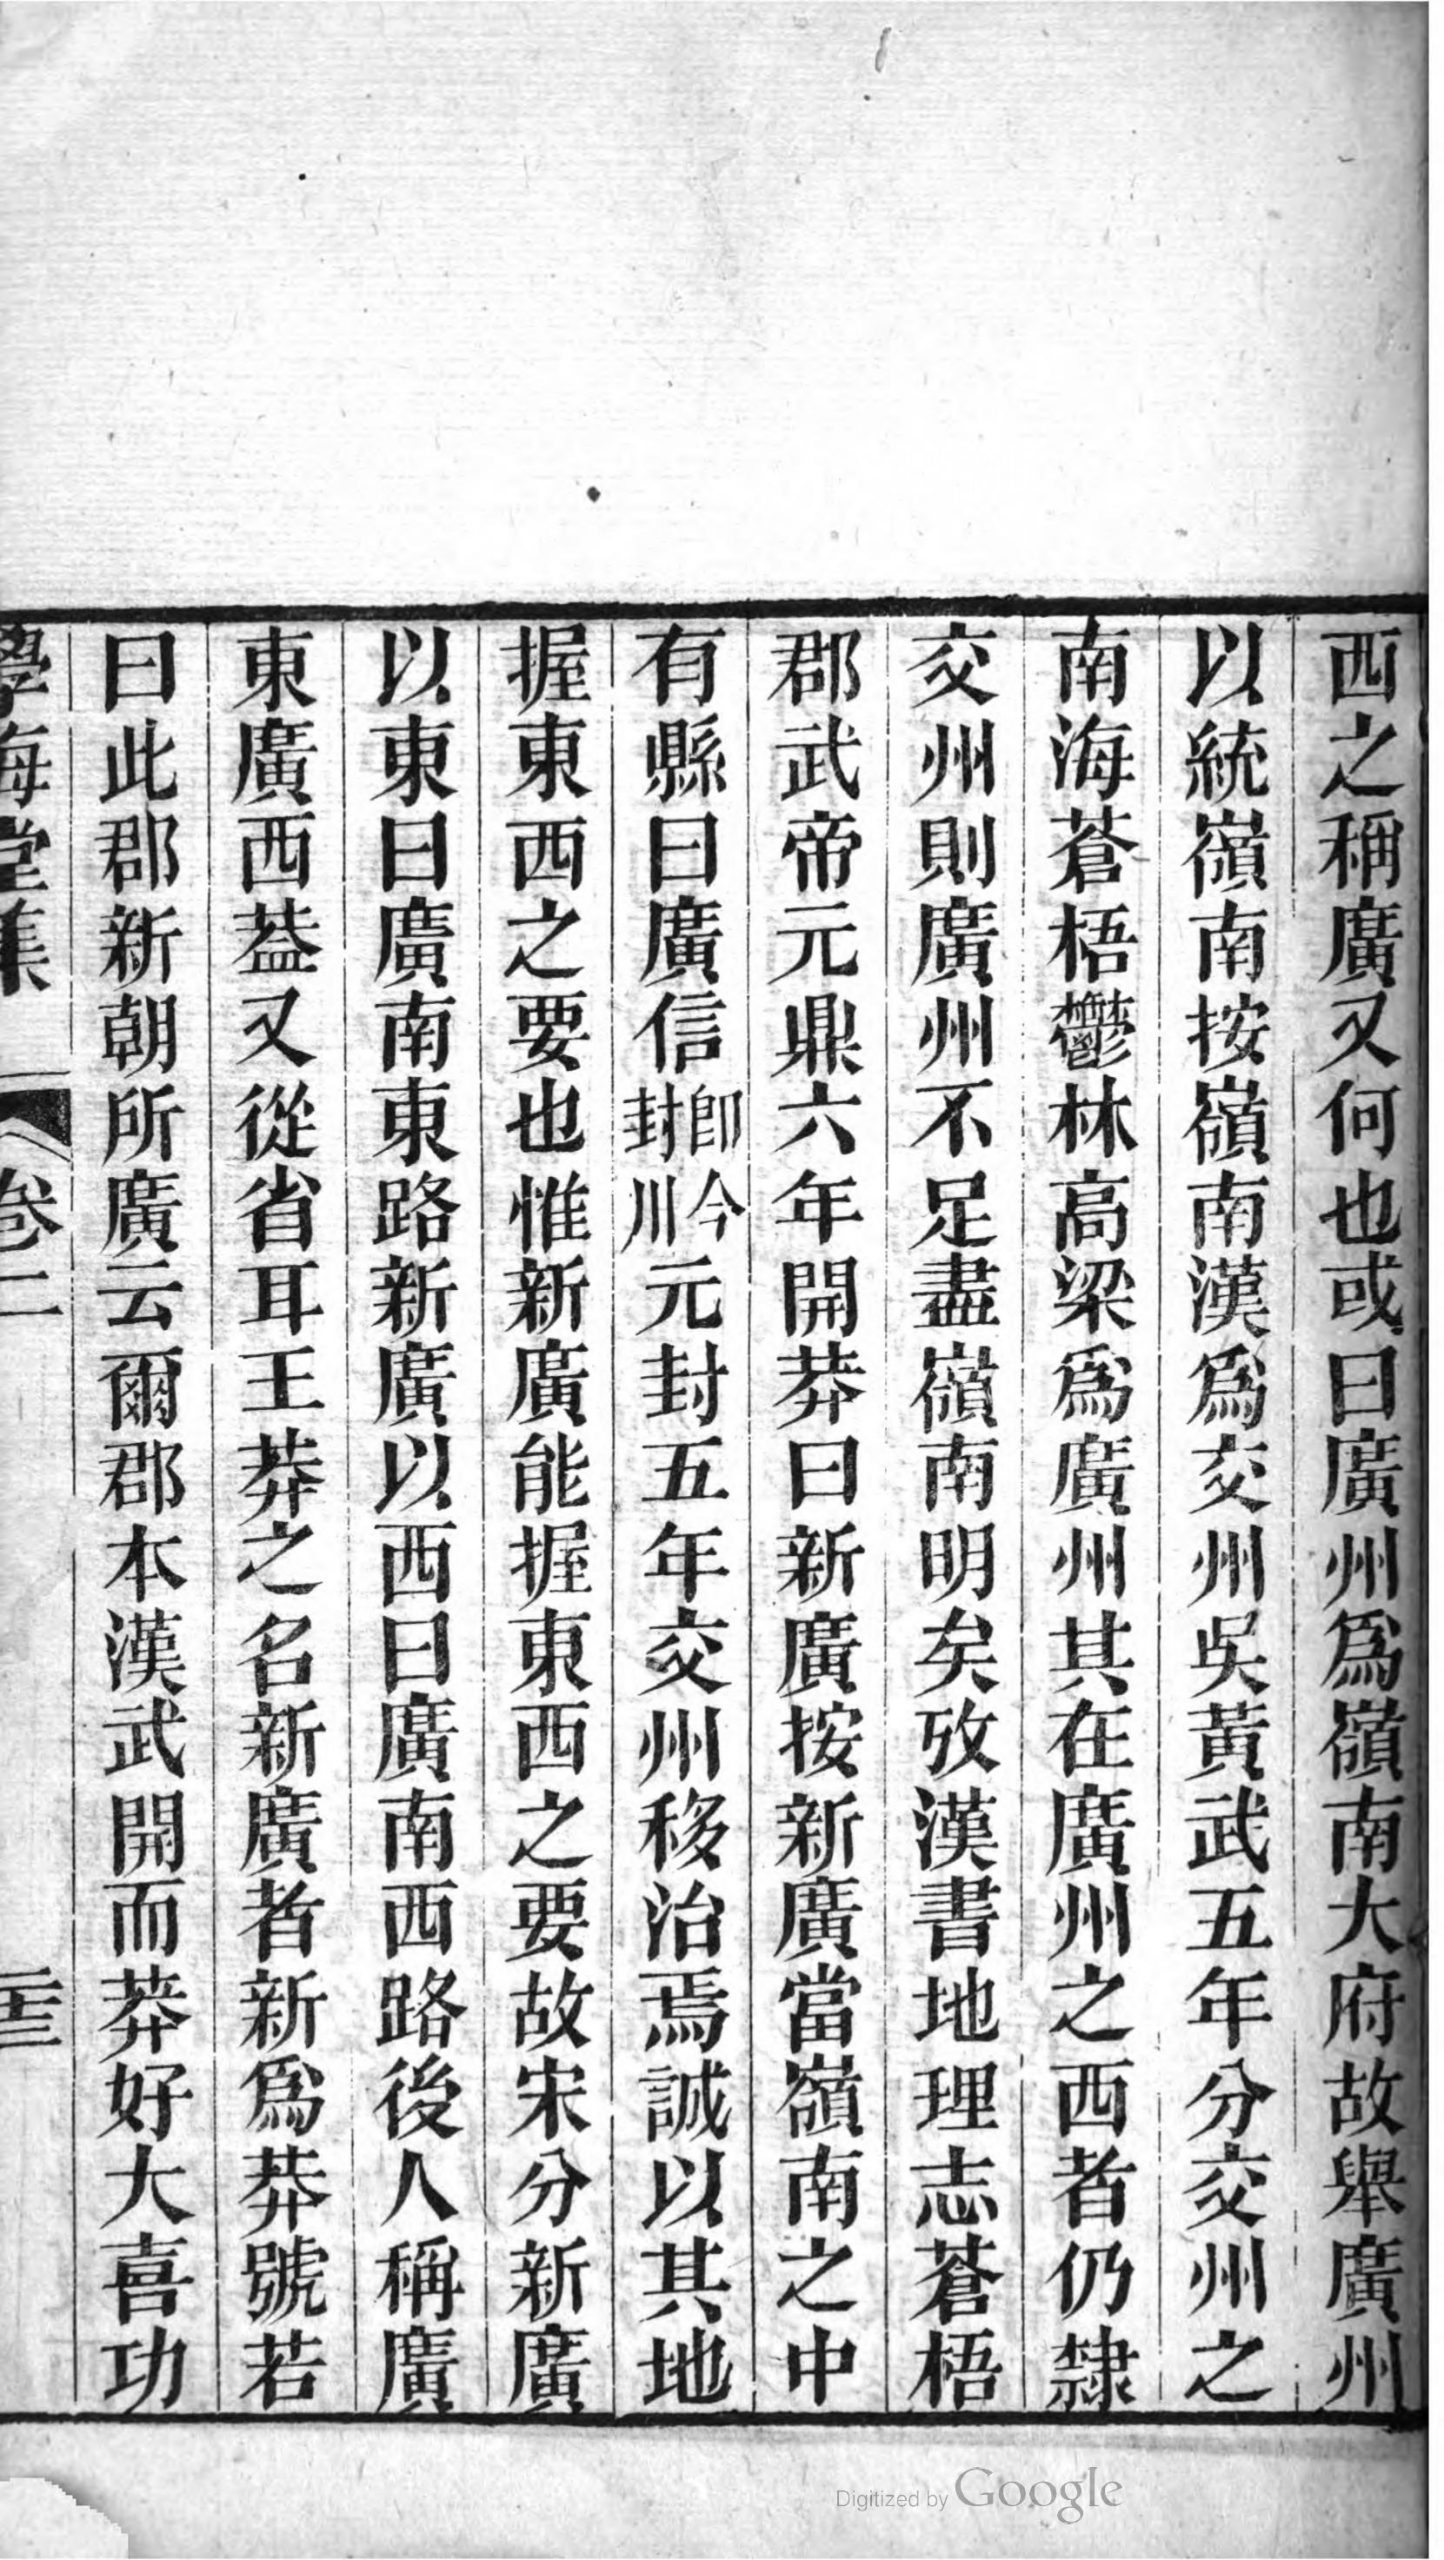 西之稱廣又何也或曰廣州爲嶺南大府故舉廣州
以統嶺南按嶺南漢爲交州吳黃武五年分交州之
南海蒼梧鬱林高梁爲廣州其在廣州之西者仍隸
交州則廣州不足盡嶺南明矣攷漢書地理志蒼梧
郡武帝元鼎六年開莽曰新廣按新廣當嶺南之中
有縣曰廣信卽今封川元封五年交州移治焉誠以其地
握東西之要也惟新廣能握東西之要故宋分新廣
以東曰廣南東路新廣以西曰廣南西路後人稱廣
東廣西葢又從省耳王莽之名新廣者新爲莽號若
曰此郡新朝所廣云爾郡本漢武開而莽好大喜功
學海堂集 卷二 二十三
Digitized by Google